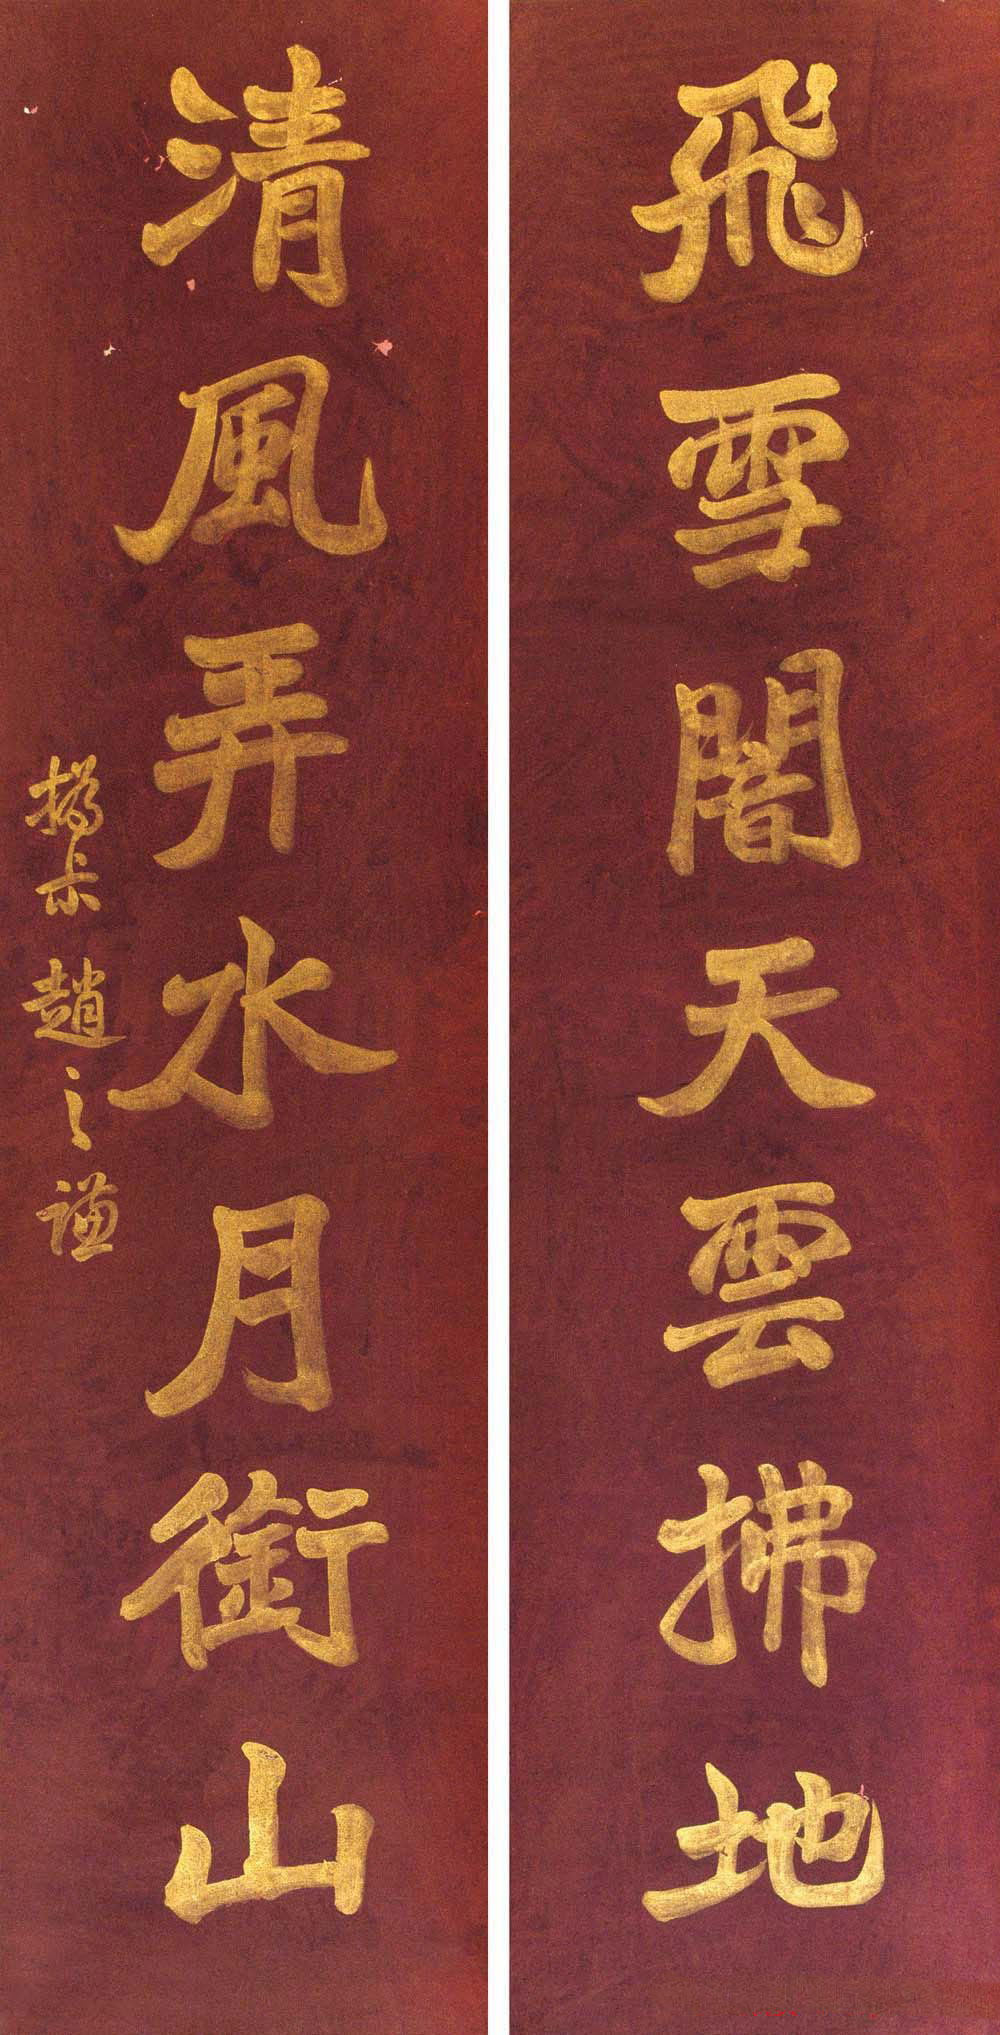 飛雪闇天雲拂地
清風弄水月銜山
撝尗趙之謙